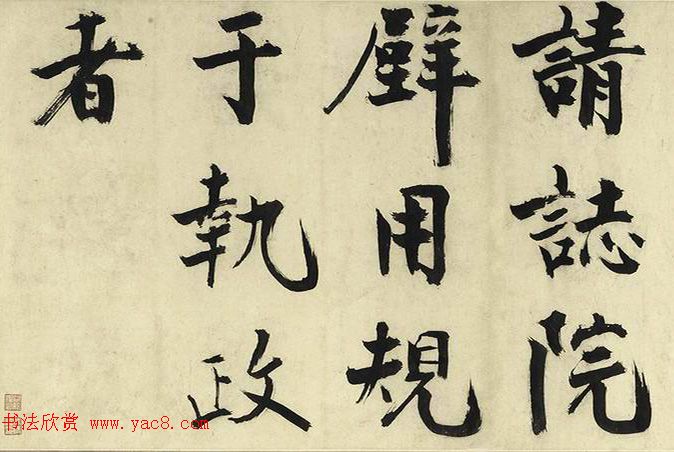 請誌院
壁用規
于執政
者
书法欣赏 www.yac8.com